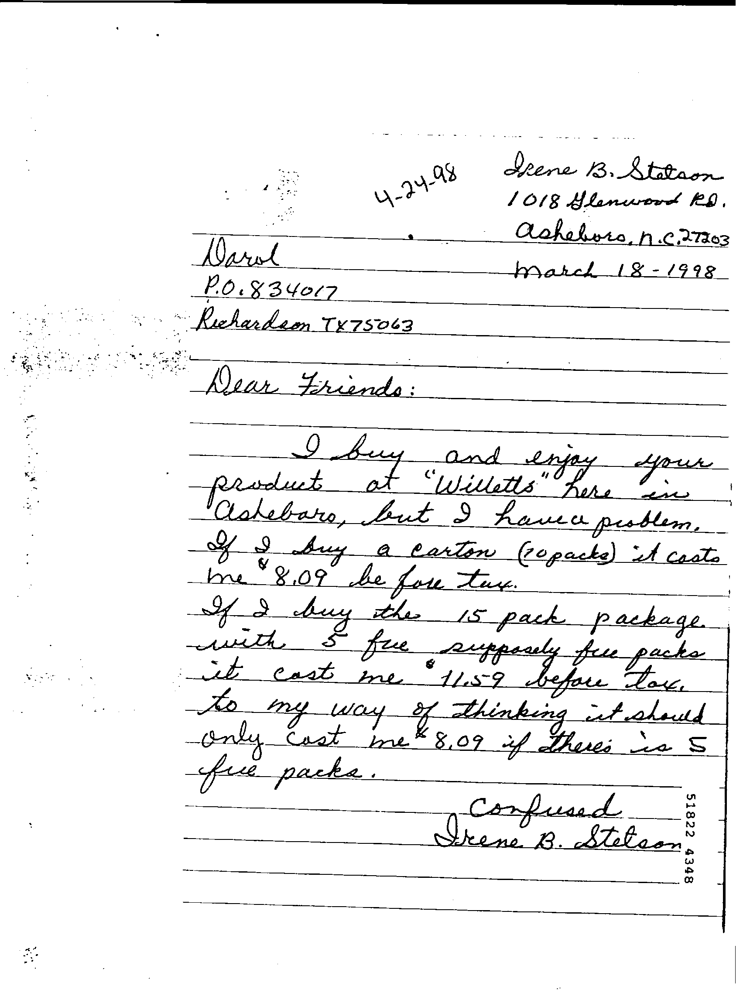 4-24-98
Irene B. Stetson
1018 Glenwood RD.
Asheboro, n.C. 27203
March 18-1998
Darol
P.O. 834017
Richardson TX 75063
Dear Friends:
I buy and enjoy your
product at "Willetts" here in
Ashebaro, but I have a problem.
If I buy a carton (10 packs) it costs
me $8.09 be fore tax.
If I buy the 15 pack package
with 5 free supposely free packs
it cost me $11.59 before tax.
to my way of thinking it should
only cost me $8.09 if there's is 5
free packs.
Confused
Irene B. Stetson
51822 4348